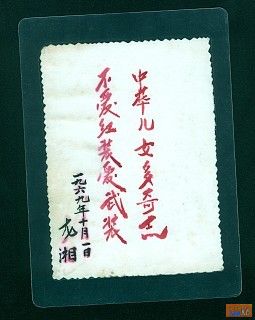 中华儿女多奇志
不爱红装爱武装
一九六九年十月一日
龙湘